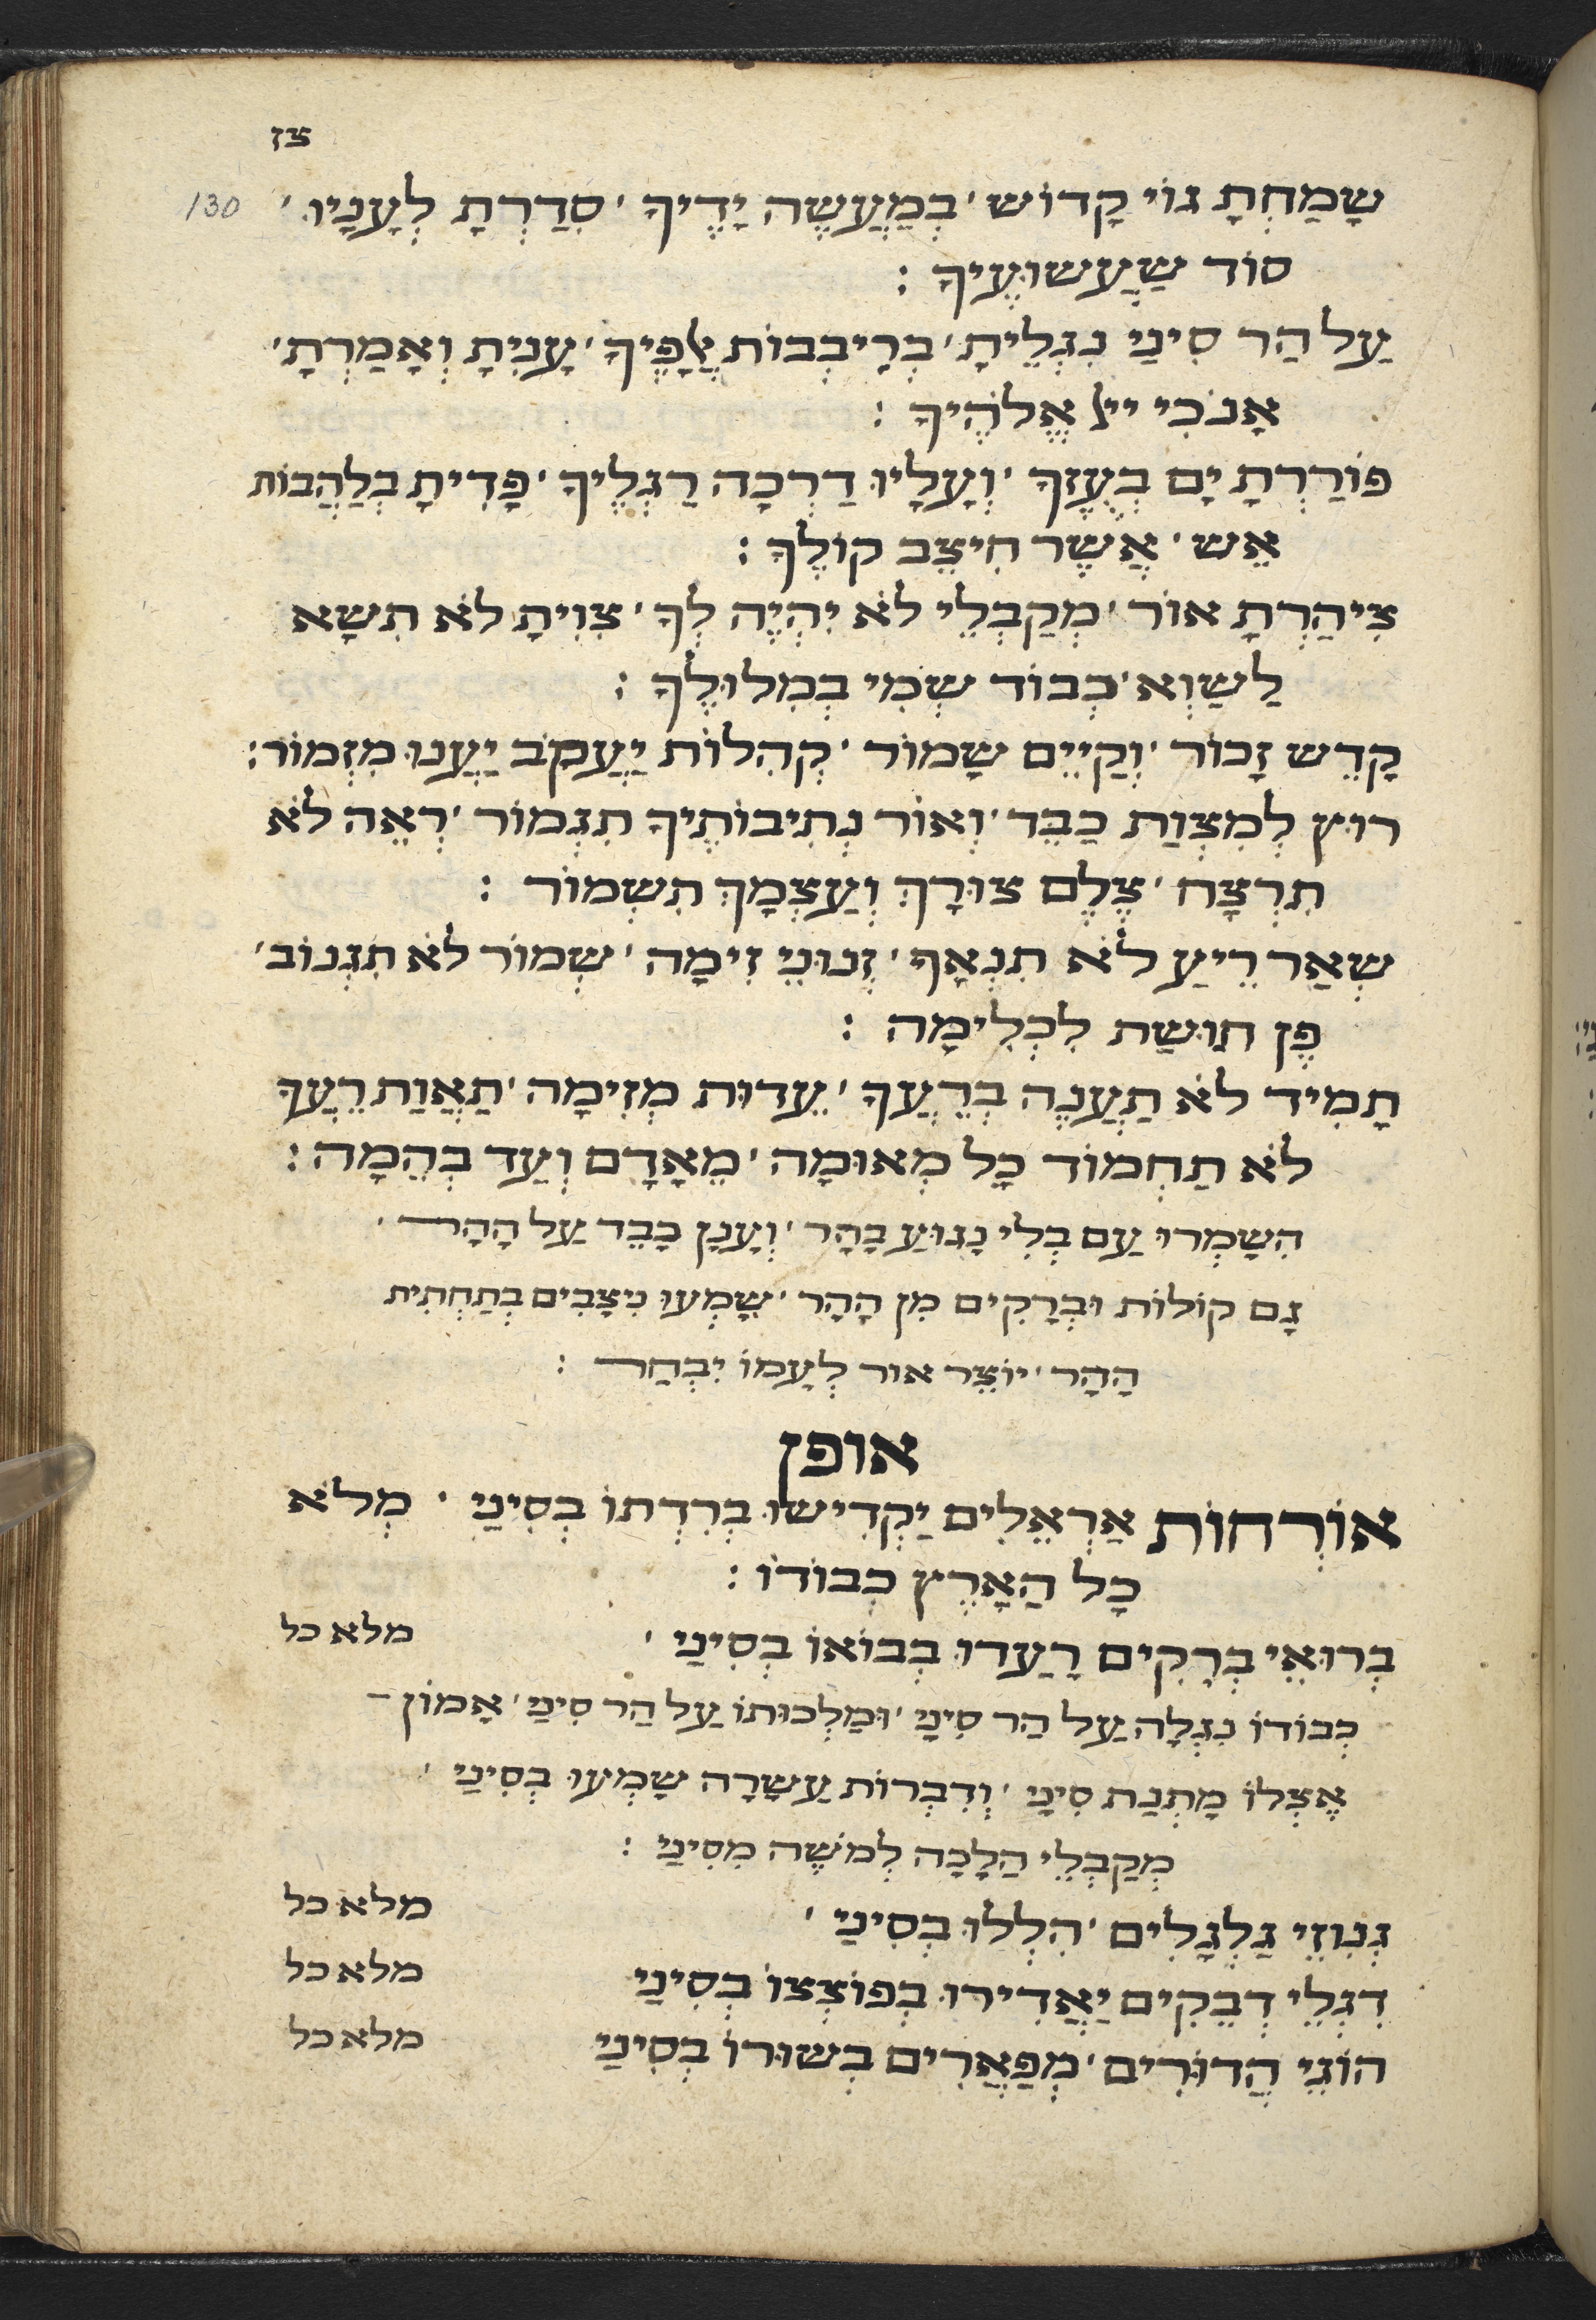 צז
130
שָמַחְתָ גוֹי קָדוֹש ׳ בְמַעֲשֶה יָדֶיךָ ׳ סִדַרְתָ לְעָנָיו ׳
סוֹד שַעֲשוּעֶיךָ :
עַל הַר סִינַי נִגְלֵיתָ ׳ בְרִיבְבוֹת אֲלָפֶיךָ ׳ עָנִיתָ וְאָמַרְתָ ׳
אָנֹכִי ייֹ אֱלֹהֶיךָ :
פוֹרַרְתָ יָם בְעֻזֶךָ ׳ וְעָלָיו דַרְכָה רַגְלֶיךָ ׳ פָדִיתָ בְלַהֲבוֹת
אֵש ׳ אֲשֶר חִיצֵב קוֹלֶךָ :
צִיהַרְתָ אוֹר ׳ מְקַבְלֵי לֹא יִהְיֶה לְךָ ׳ צִוִיתָ לֹא תִשָא
לַשַוְא ׳ כְבוֹד שְמִי בְמִלוּלֶךָ :
קָדֵש זָכוֹר ׳ וְקַיֵים שָמוֹר ׳ קְהִלוֹת יַעֲקֹב יַעֲנוּ מִזְמוֹר :
רוּץ לְמִצְוַת כַבֵד ׳ וְאוֹר נְתִיבוֹתֶיךָ תִגְמוֹר ׳ רְאֵה לֹא
תִרְצָח ׳ צֶלֶם צוּרָךְ וְעַצְמָךְ תִשְמוֹר :
שְאַר רֵיעַ לֹא תִנְאָף ׳ זְנוּנֵי זִימָה ׳ שְמוֹר לֹא תִגְנוֹב ׳
פֶן תוּשַת לִכְלִימָה :
תָמִיד לֹא תַעֲנֶה בְרֵעֲךָ ׳ עֵדוּת מְזִימָה ׳ תַאֲוַת רֵעֲךָ
לֹא תַחְמוֹד כָל מְאוּמָה ׳ מֵאָדָם וְעַד בְהֵמָה :
הִשָמְרוּ עַם בְלִי נָגוּעַ בָהָר ׳ וְעָנָן כָבֵד עַל הָהָר ׳
גָם קוֹלוֹת וּבְרָקִים מִן הָהָר ׳ שָמְעוּ נִיצָבִים בְתַחְתִית
הָהָר ׳ יוֹצֵר אוֹר לְעַמוֹ יִבְחַר :
אופן
אוֹרְחוֹת אַרְאֵלִים יַקְדִישוּ בְרִדְתוֹ בְסִינַי ׳ מְלֹא
כָל הַאָרֶץ כְבוֹדוֹ :
בְרוּאֵי בְרָקִים רָעֲדוּ בְבוֹאוֹ בְסִינַי ׳ מלא כל
כְבוֹדוֹ נִגְלָה עַל הַר סִינַי ׳ וּמַלְכוּתוֹ עַל הַר סִינַי ׳ אָמוֹן
אֶצְלוֹ מָתְנַת סִינַי ׳ וְדִבְרוֹת עֲשָרָה שָמְעוּ בְסִינַי ׳
מְקַבְלֵי הֲלָכָה לְמֹשֶה מִסִינַי :
גְנוּזֵי גַלְגַלִים ׳ הִלְלוּ בְסִינַי ׳ מלא כל
דִגְלֵי דְבֵקִים יַאֲדִירוּ בְפוֹצְצוֹ בְסִינַי מלא כל
הוֹגֵי הֲדוּרִים ׳ מְפַאֲרִים בְשוּרוֹ בְסִינַי מלא כל